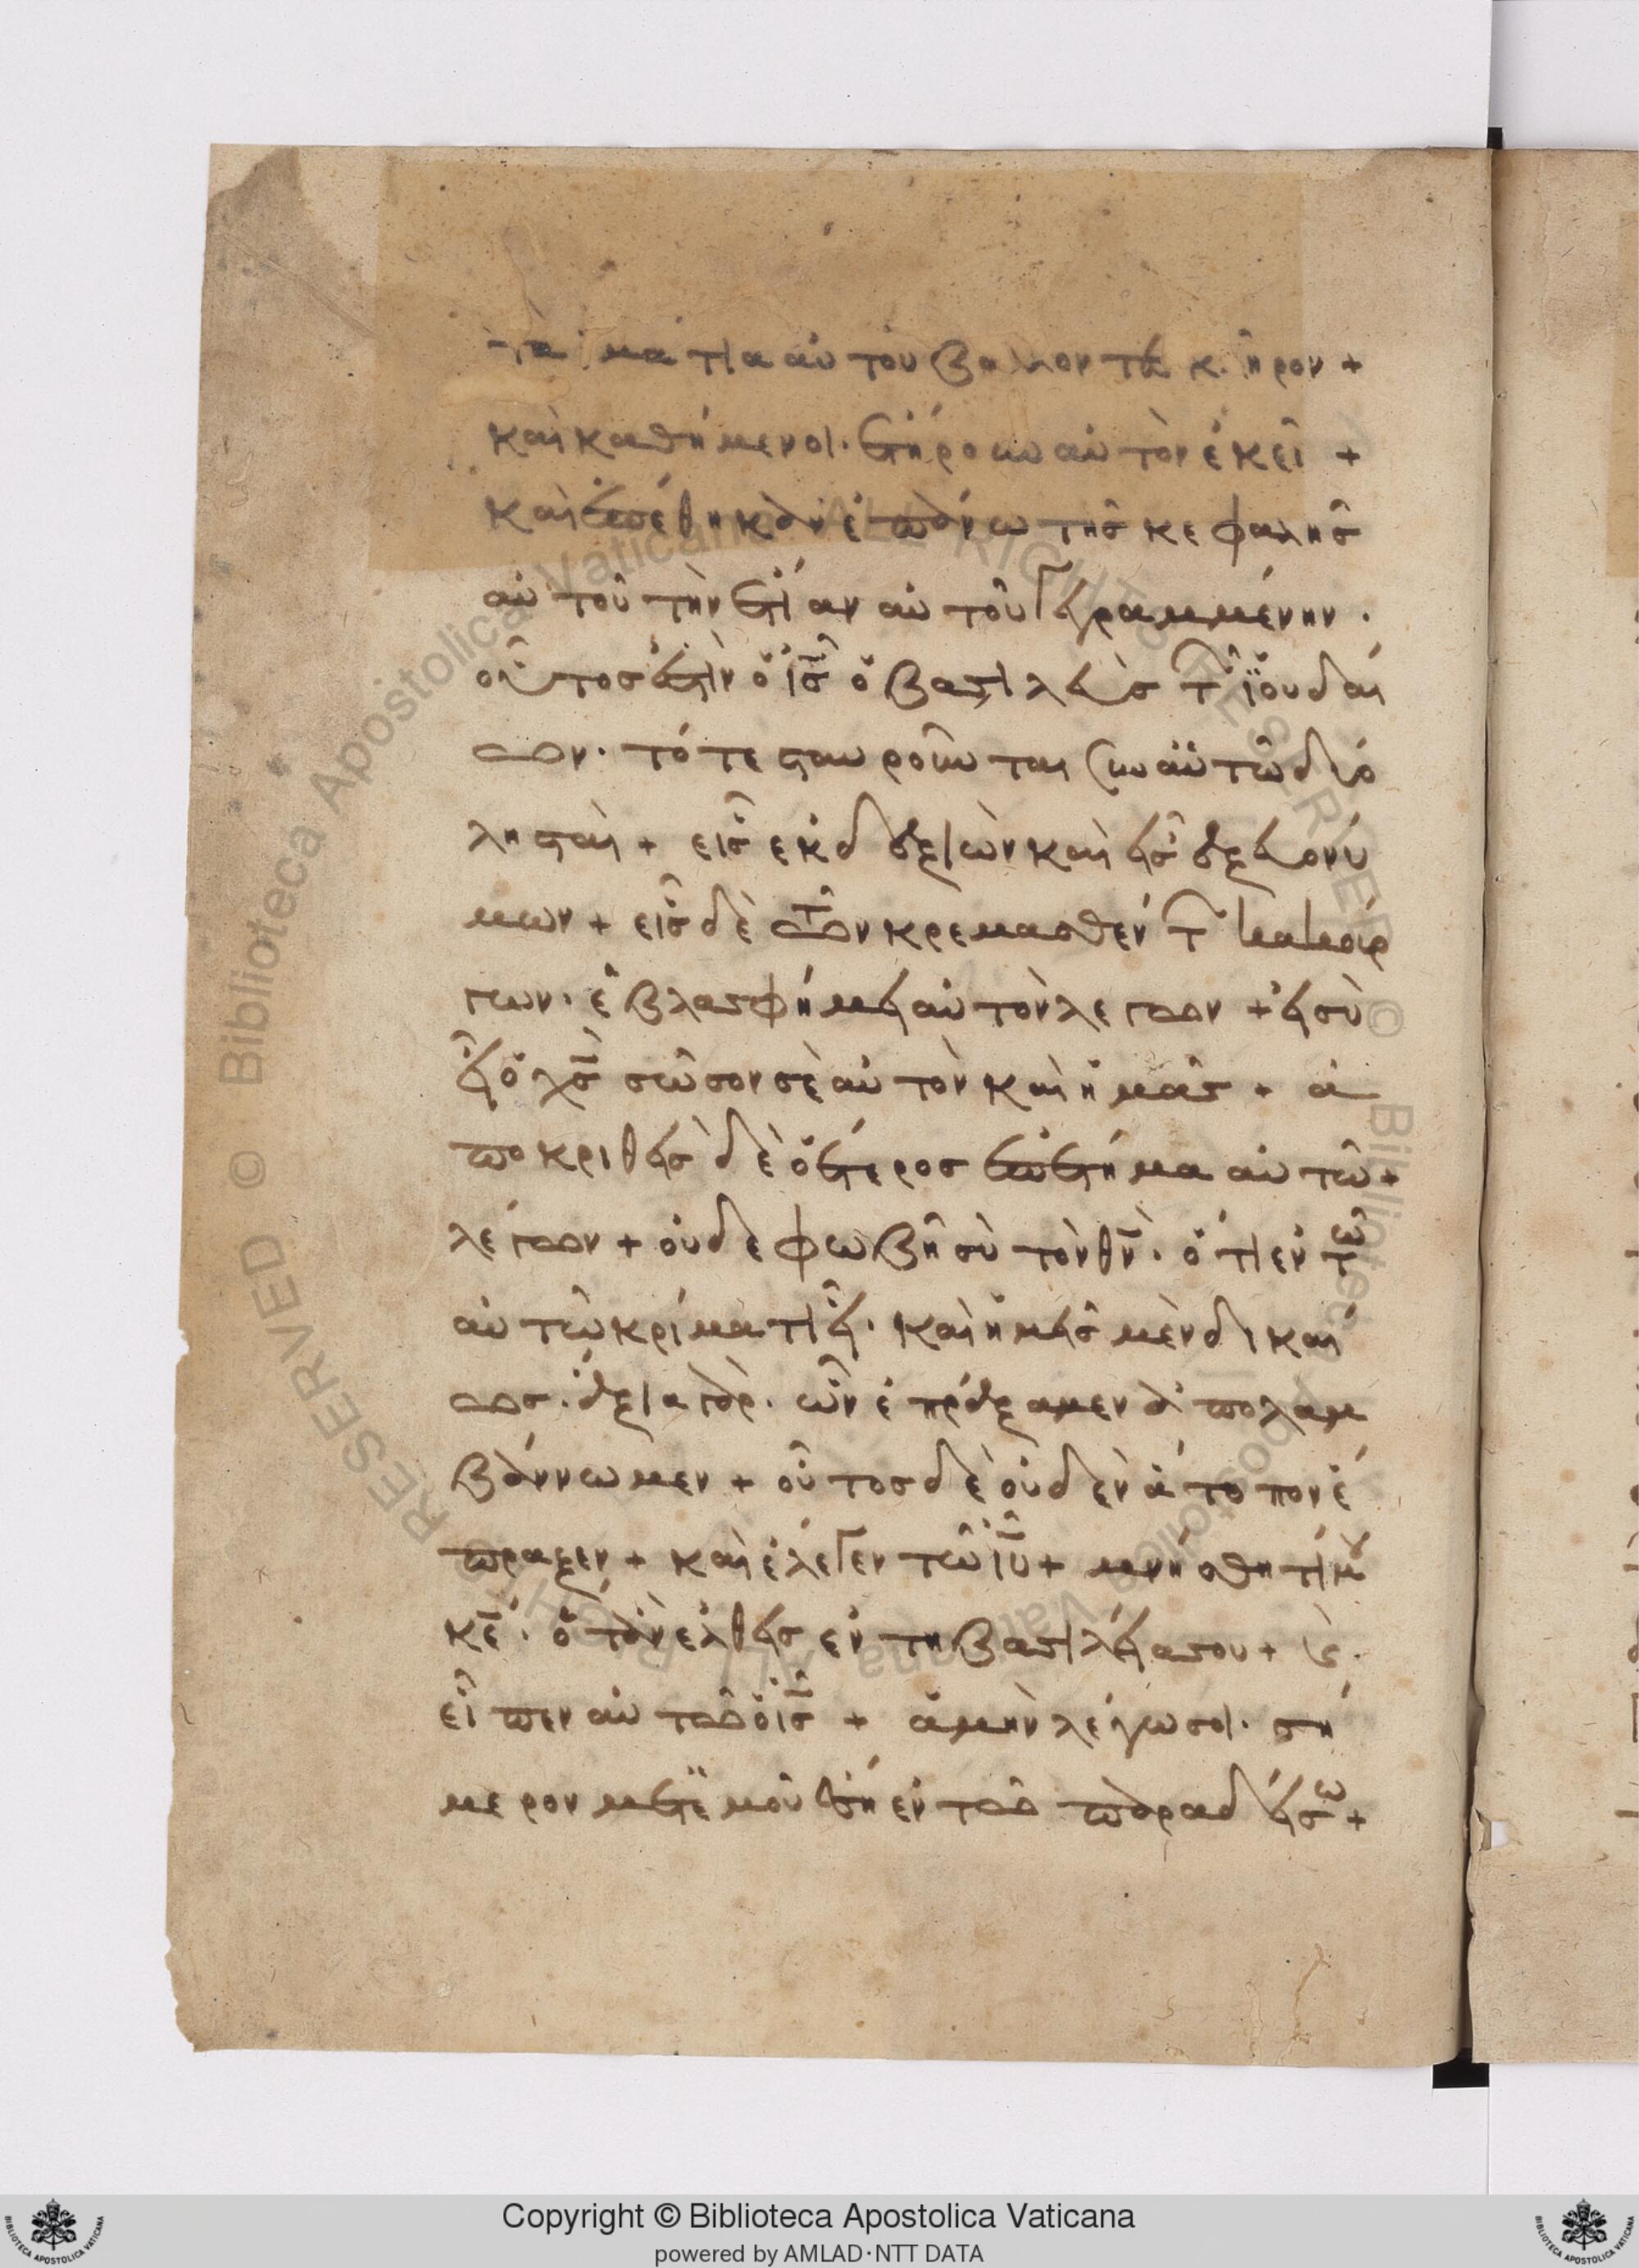 τὰ ἱμάτια αὐτοῦ βάλλοντες κλῆρον +
καὶ καθήμενοι. ἐτήρουν αὐτὸν ἐκεῖ +
καὶ ἐπέθηκαν ἐπάνω τῆς κεφαλῆς
αὐτοῦ τὴν ἐτίαν αὐτοῦ γεγραμμένην.
οὗτος ἐστὶν ὁ ις̅ ὁ βασιλεὺς τῶν ϊουδαί
ων. τότε σταυροῦνται σὺν αὐτῶ δύο
λησταὶ + εἷς ἐκ δεξιῶν καὶ εἷς ἐξ εὐονύ
μων + εἷς δὲ τῶν κρεμασθέντων κακούρ
γων. ἐβλασφήμει αὐτὸν λέγων + εἰ σὺ
εἶ ὁ χς̅ σῶσον σὲ αὐτὸν καὶ ἡμᾶς + ἀ
ποκριθεὶς δὲ ὁ ἕτερος ἐπετήμα αὐτῶ +
λέγων + οὐδὲ φωβῆ σὺ τὸν θν̅. ὅτι ἐν τῶ
αὐτῶ κρίματι εἶ. καὶ ἡμεῖς μὲν δικαί
ως. ἄξια γὰρ. ὧν ἐπράξαμεν ἀπολαμ
βάννωμεν + οὗτος δὲ οὐδὲν ἄτοπον ἔ
πραξεν + καὶ ἔλεγεν τῶ ιυ̅ + μνήσθητί μου
κε̅. ὅταν ἔλθεις ἐν τῆ βασιλεία σου + καὶ
εἶπεν αὐτῶ ὁ ις̅ + ἀμὴν λέγω σοι. σή
μερον μετ' ἐμοῦ ἔση ἐν τῶ παραδείσω +
Copyright © Biblioteca Apostolica Vaticana
powered by AMLAD·NTT DATA